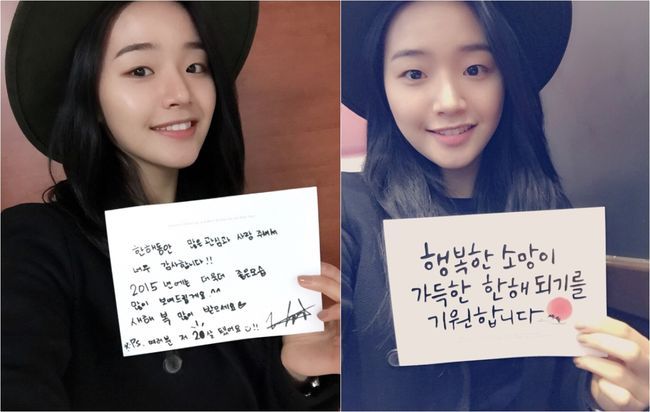 한해동안 많은 관심과 사랑 주셔서
너무 감사합니다!!
2015년에는 더 좋은모습
많이 보여드릴게요 ^^
새해 복 많이 받으세요
P.S. 여러분 저 20살 됐어요 !!
행복한 소망이
가득한 한해 되기를
기원합니다